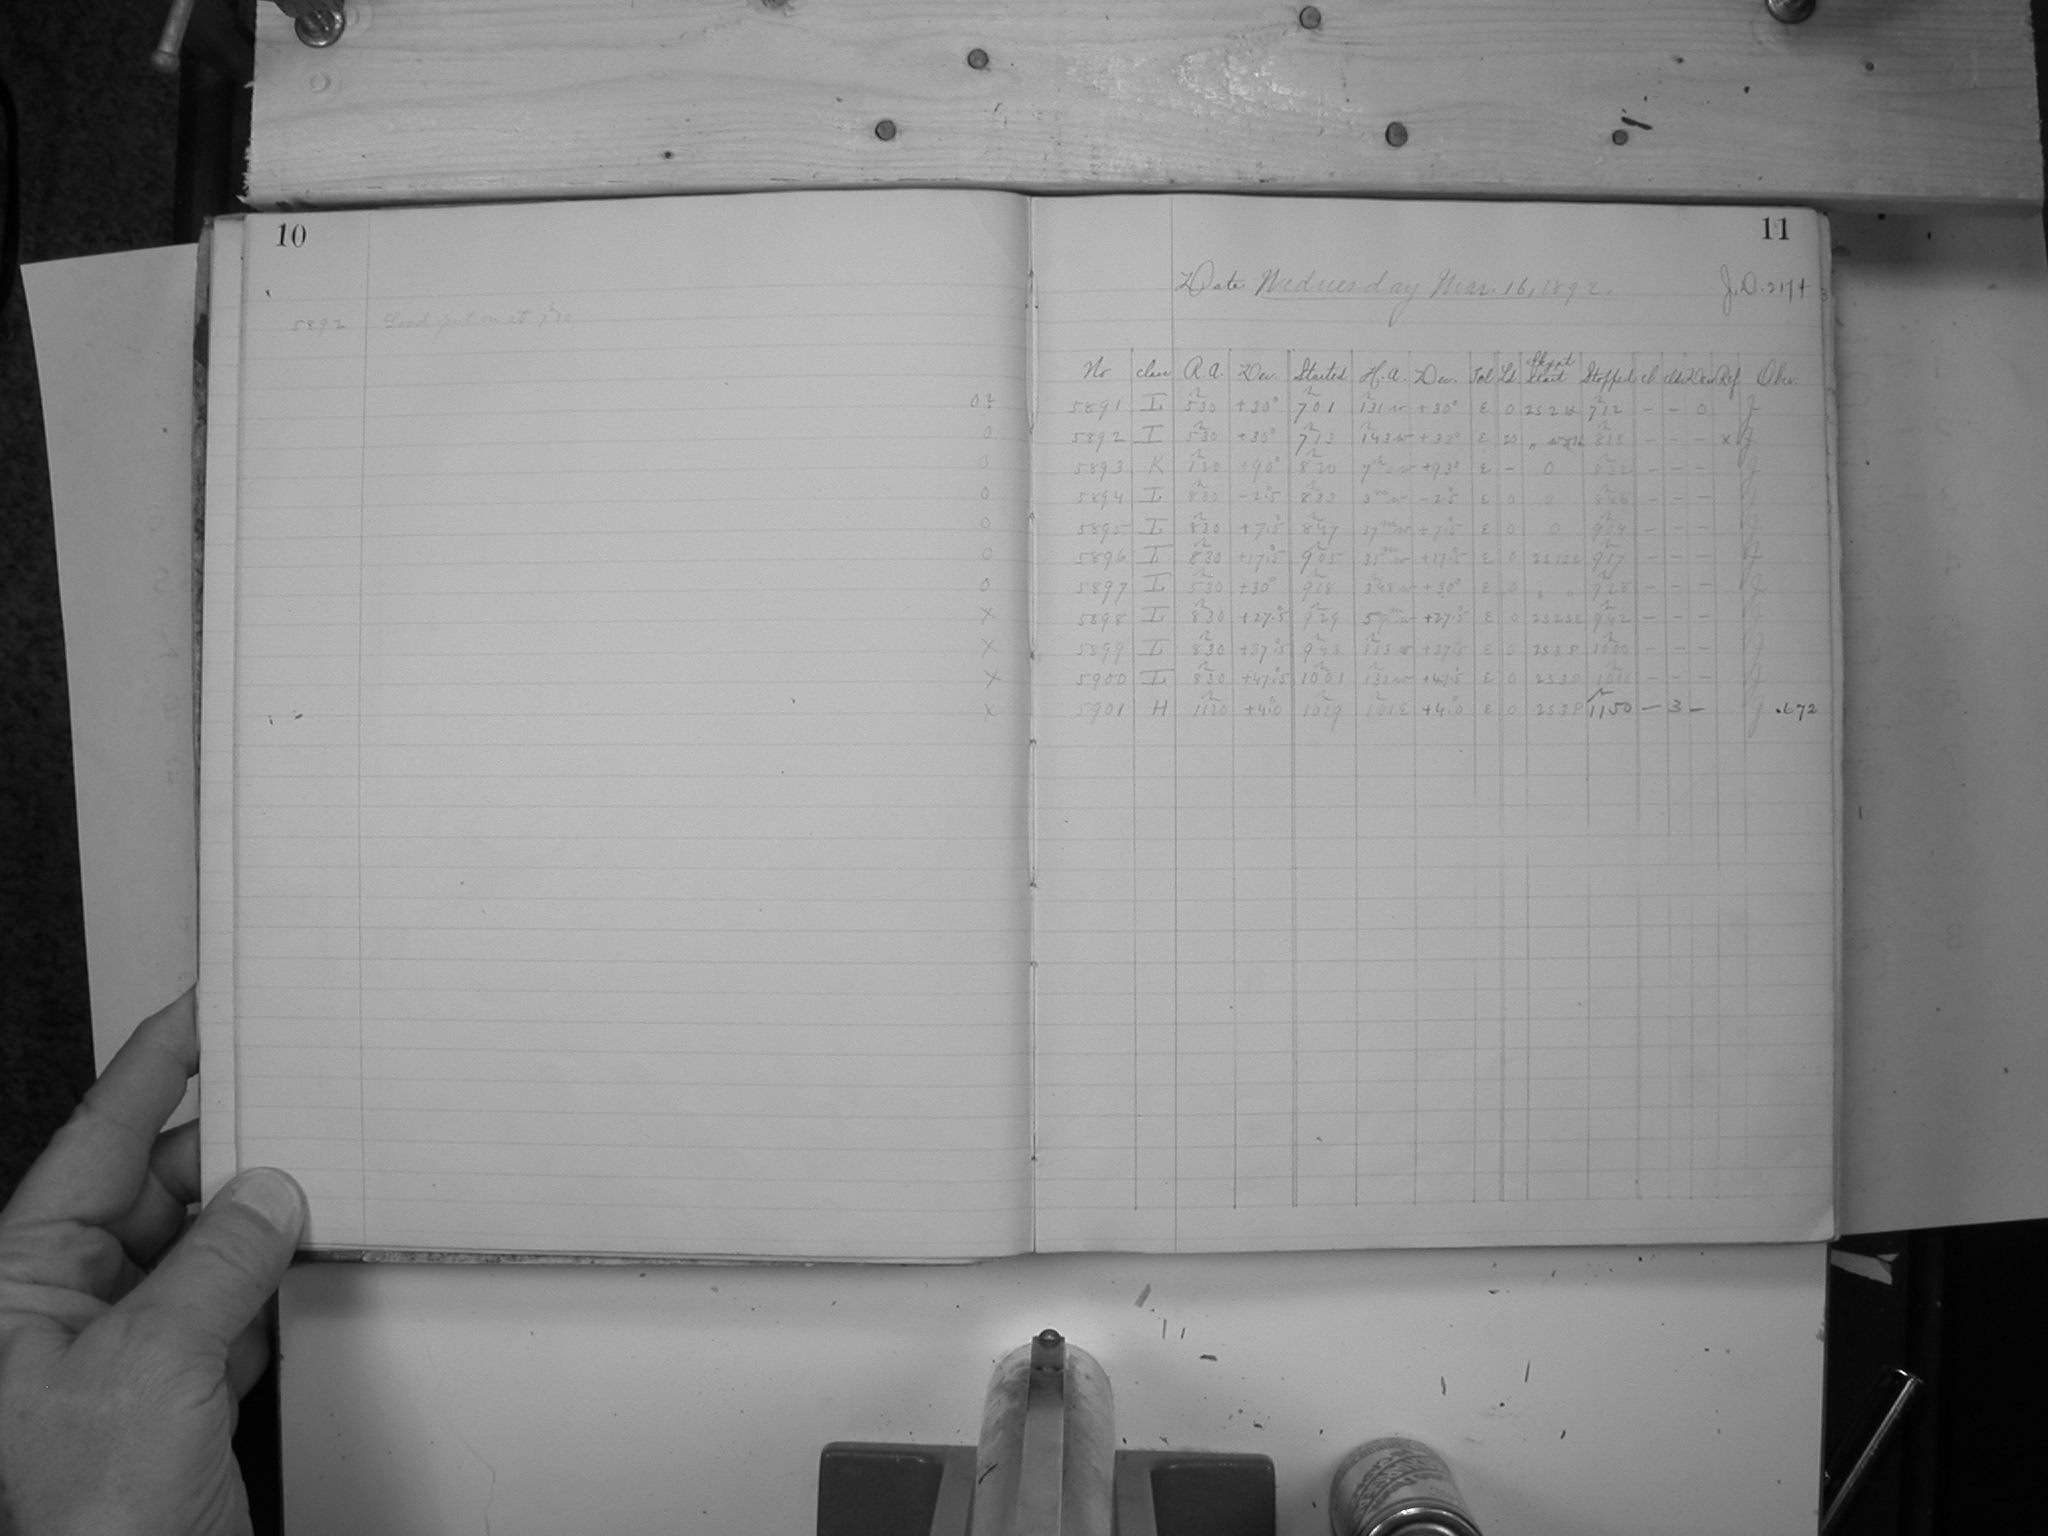 10
5892 Load put on at 7 20
11
Date Wednesday Mar. 16, 1892.
J.D. 2174
No class R.A. Dec. Started H.A. Dec. Tel Ld Start Stopped cl Dew Ref Obs.
0? 5891 L 5 30 +30° 7 01 1 31 w +30° E 0 7 12 – – 0 J
0 5892 I 5 30 +30° 7 13 1 43 w +30° E 20 8 18 – – – x J
0 5893 K 1 20 +90° 8 20 +90° E – 0 8 32 – – – J
0 5894 L 8 30 –2.5 8 33 3m w –2.5 E 0 0 8 46 – – – J
0 5895 L 8 30 +7.5 8 47 17m w +7.5 E 0 0 9 04 – – – J
0 5896 L 8 30 +17.5 9 05 35m w +17.5 E 0 9 17 – – – J
0 5897 L 5 30 +30° 9 18 3 48 w +30° E 0 " " 9 28 – – – J
X 5898 L 8 30 +27.5 9 29 59m w +27.5 E 0 9 42 – – – J
X 5899 L 8 30 +37.5 9 43 1 13 w +37.5 E 0 2S3P 10 00 – – – J
X 5900 L 8 30 +47.5 10 01 1 31 w +47.5 E 0 2S3P – – – J
X 5901 H 11 20 +4.0 10 19 1 01 E +4.0 E 0 2S3P 11 50 – 3 – J .672